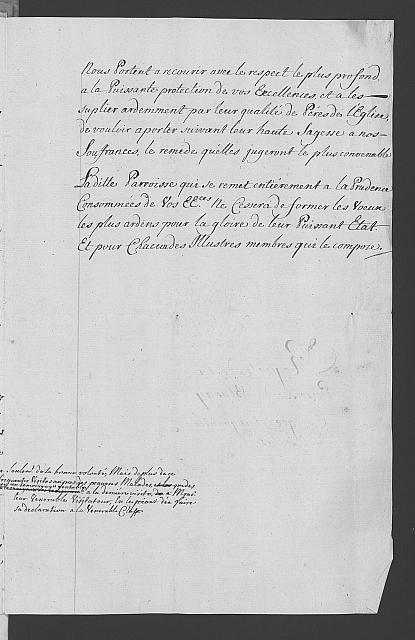 Nous Portent a recourir avec le respect le plus profond
a la Puissante protection de vos Excellences, et a les
suplier ardemment par leur qualité de Péres de l'Eglise,
de vouloir aporter suivant leur haute Sagesse a nos
Soufrances, le reméde qu'elles jugeront le plus convenable
Laditte Parroisse qui se remet entiérement a la Prudence
Consommées de Vos EE.ces Ne Cesera de former les Voeux
les plus ardens pour la gloire de leur Puissant Etat
Et pour Chacun des Illustres membres qui le compose.
de la bonne volonté, Mais de plus de
frequentes Visites aupres des pauvres Malades,
a la derniere visite, a Mons.r
leur Venerable Visitateur, en le priant d'en faire
sa declaration a la Venerable Classe